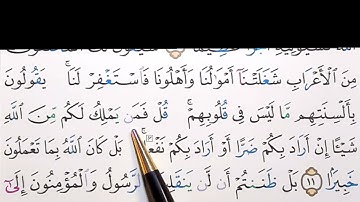 مِنَ ٱلْأَعْرَابِ شَغَلَتْنَآ أَمْوَٰلُنَا وَأَهْلُونَا فَٱسْتَغْفِرْ لَنَا ۚ يَقُولُونَ
بِأَلْسِنَتِهِم مَّا لَيْسَ فِى قُلُوبِهِمْ ۚ قُلْ فَمَن يَمْلِكُ لَكُم مِّنَ ٱللَّهِ
شَيْـًٔا إِنْ أَرَادَ بِكُمْ ضَرًّا أَوْ أَرَادَ بِكُمْ نَفْعًۢا ۚ بَلْ كَانَ ٱللَّهُ بِمَا تَعْمَلُونَ
خَبِيرًۢا ١١ بَلْ ظَنَنتُمْ أَن لَّن يَنقَلِبَ ٱلرَّسُولُ وَٱلْمُؤْمِنُونَ إِلَىٰٓ